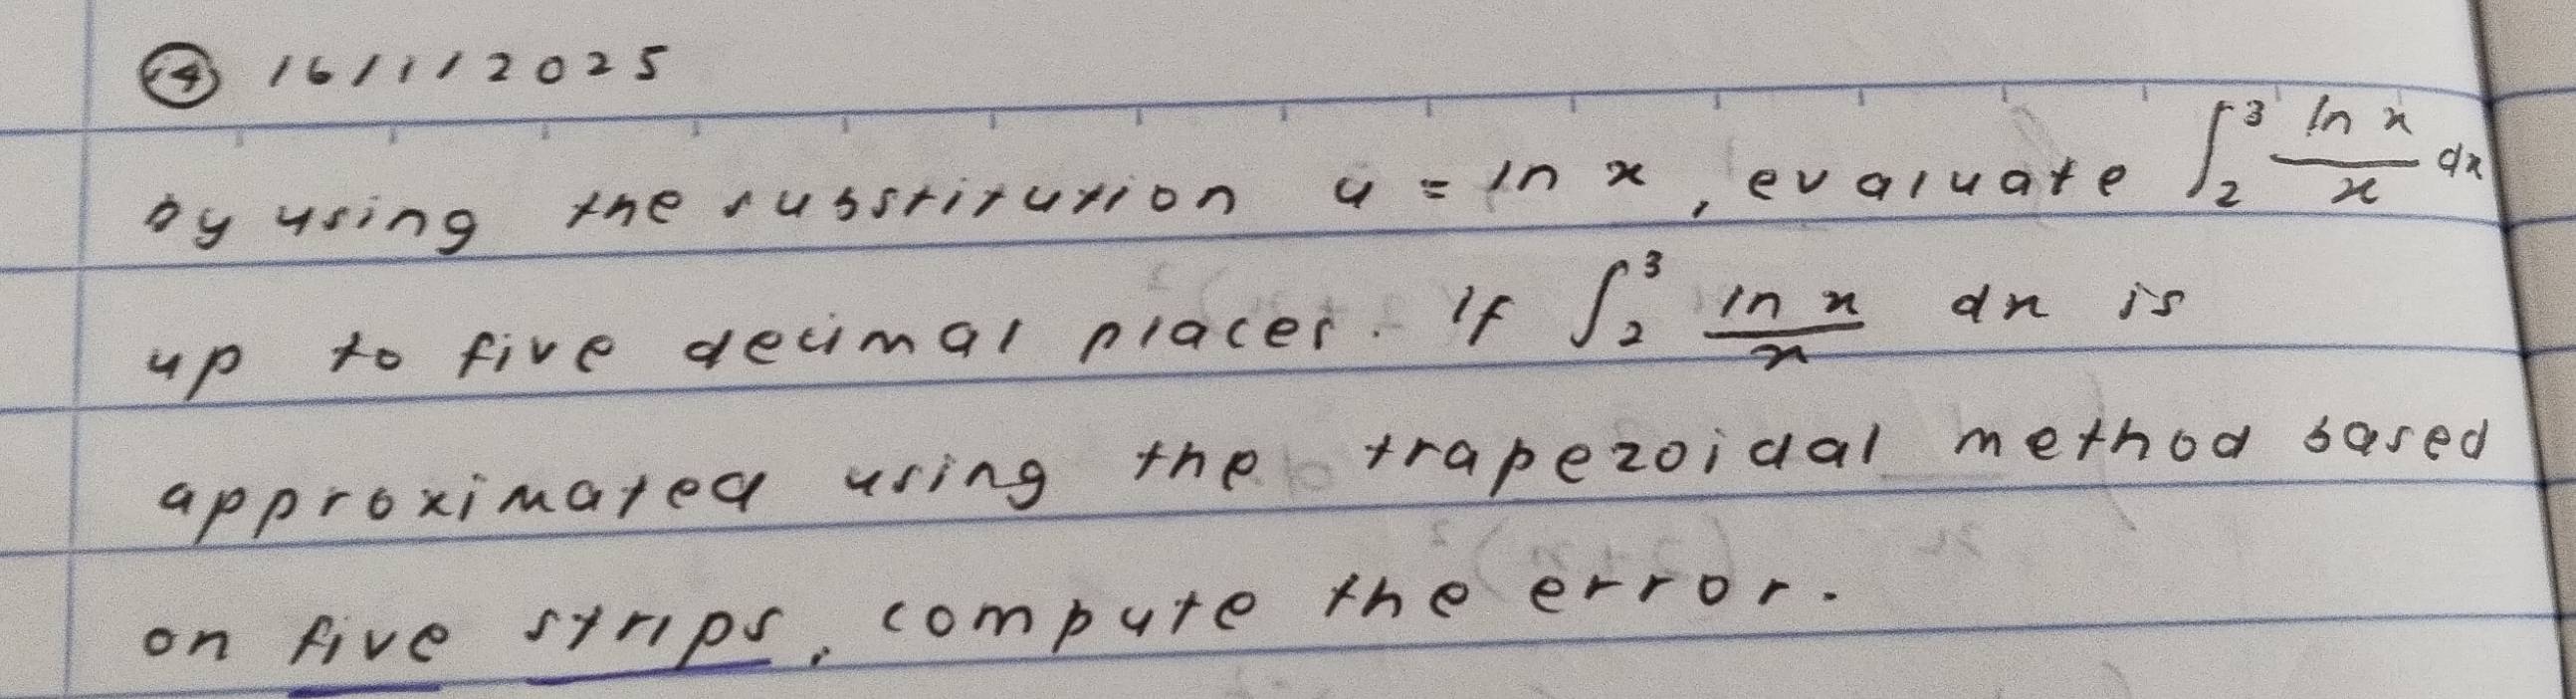 ④ 16/1/2025
by using the substitution u = ln x, evaluate ∫₂³ (ln x)/x dx
up to five decimal places. If ∫₂³ (ln x)/x dx is
approximated using the trapezoidal method based
on five strips, compute the error.